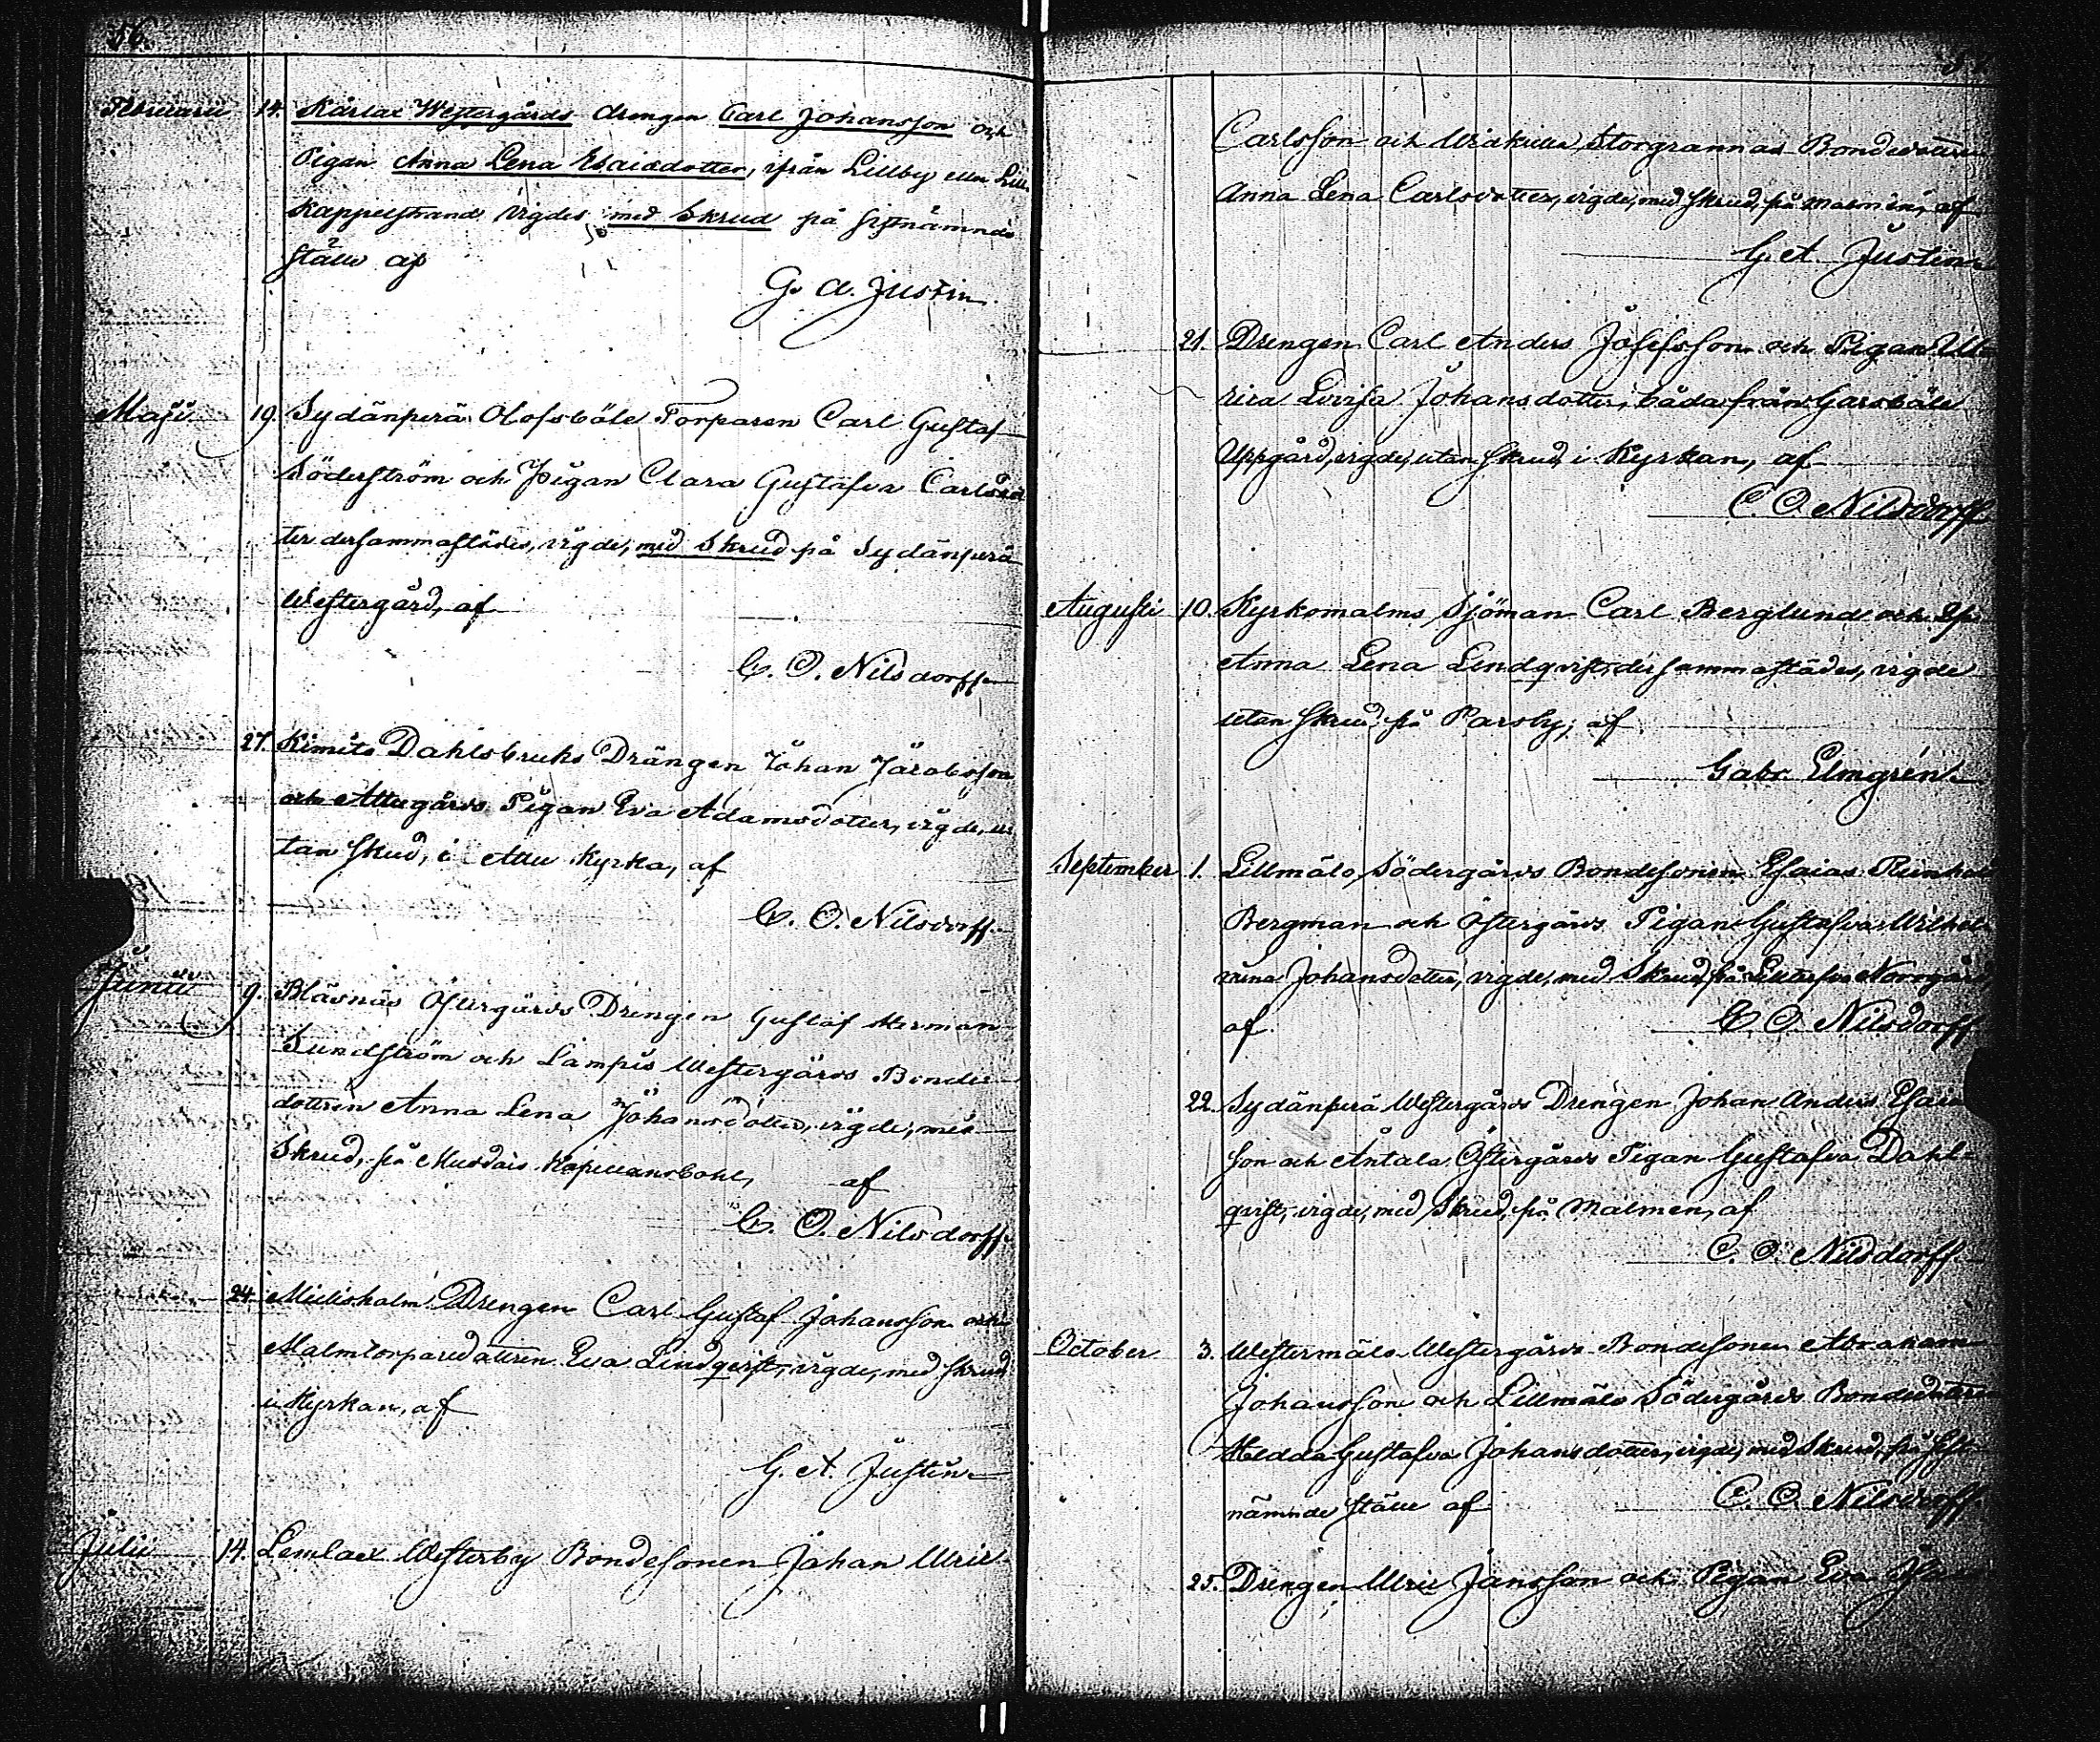 56.
Februarii 14. Kårlax Westergårds drengen Carl Johansson och
Pigan Anna Lena Esaiadotter, ifrån Lillby eller Lill
Kappelstrand vigdes med Skrud på sistnämnde
ställe af
G. A. Justin.
Maji 19. Sydänperä Olofsböle Torparen Carl Gustaf
Söderström och Pigan Clara Gustafva Carlsdot
ter dersammastädes, vigde, med Skrud på Sydänperä
Westergård, af
C. O. Nilsdorff
27. Kimito Dahlsbruks Drängen Johan Jacobsson
och Attugårds Pigan Eva Adamsdotter, vigde, u
tan skrud, i Attu Kyrka, af
C. O. Nilsdorff
Junii 9. Bläsnäs Östergårds Drengen Gustaf Herman
Sundström och Lampis Westergårds Bonde
dottren Anna Lena Johansdotter, vigde, med
Skrud, på Mustois Kapellansbohl, af
C. O. Nilsdorff
24. Mielisholm Drengen Carl Gustaf Johansson och
Malmtorparedottren Eva Lindqvist, vigde, med skrud
i Kyrkan, af
G. A. Justin
Julii 14. Lemlax Westerby Bondesonen Johan Ulric
Carlsson och Storgrannas Bondedottren
Anna Lena Carlsdotter, vigde, med skrud, på Malmen, af
G. A. Justin
21. Drengen Carl Anders Josefsson och Pigan Ul-
rica Lovisa Johansdotter, båda från Garsböle
Uppgård, vigde, utan skrud, i Kyrkan, af
C. O. Nilsdorff
Augusti 10. Kyrkomalms Sjöman Carl Berglund och
Anna Lena Lindqvist, dersammastädes, vigde
utan skrud på Parsby, af
Gabr. Elmgrén
September 1. Lillmälo Södergårds Bondesonen Esaias Reinhold
Bergman och Östergårds Pigan Gustafva Wilhel-
mina Johansdotter, vigde, med Skrud, på Norrgård,
af C. O. Nilsdorff
22. Sydänperä Westergårds Drengen Johan Anders Esaias
son och Antala Östergårds Pigan Gustafva Dahl-
qvist, vigde, med Skrud, på Malmen, af
C. O. Nilsdorff
October 3. Westermälo Westergårds Bondesonen Abraham
Johansson och Lillmälo Södergårds Bondedottren
Hedda Gustafva Johansdotter, vigde, med Skrud, på sist-
nämnde ställe af C. O. Nilsdorff
25. Drengen Ulric Jansson och Pigan Eva